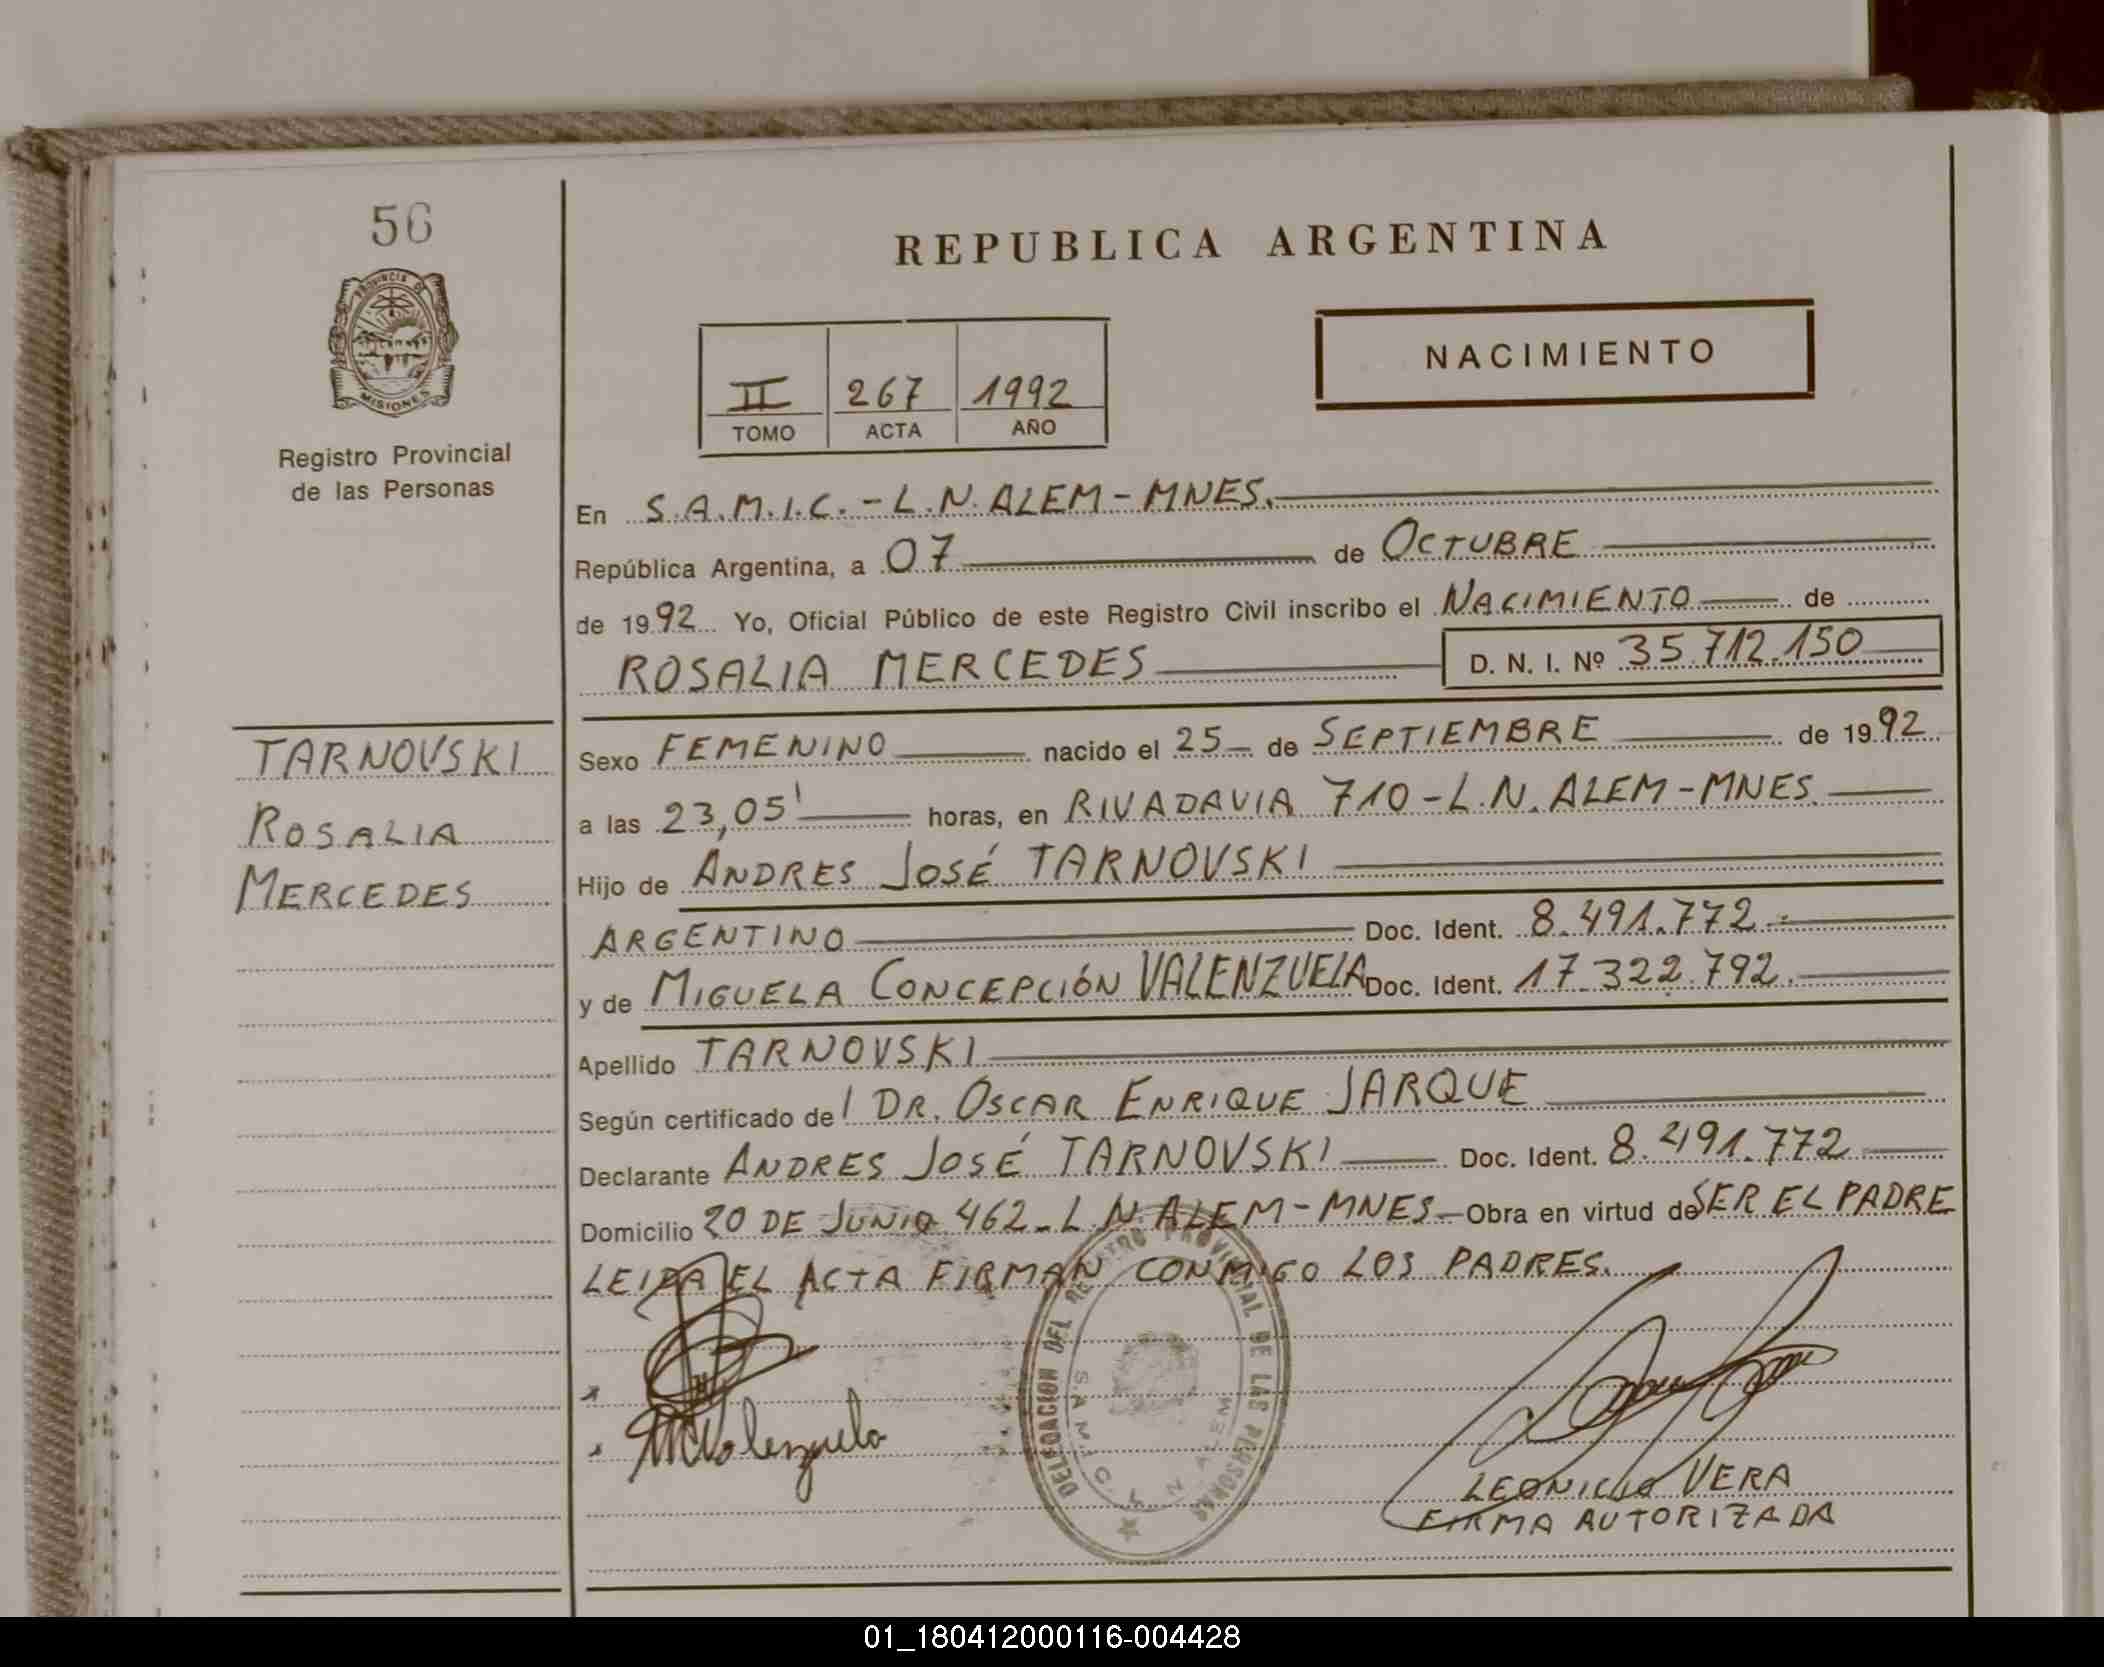 56
PROVINCIA DE
MISIONES
Registro Provincial
de las Personas
REPUBLICA ARGENTINA
NACIMIENTO
II 267 1992
TOMO ACTA AÑO
En S.A.M.I.C. - L.N. ALEM - MNES.
República Argentina, a 07 de OCTUBRE
de 1992 Yo, Oficial Público de este Registro Civil inscribo el NACIMIENTO de
ROSALIA MERCEDES D. N. I. Nº 35.712.150
TARNOVSKI
ROSALIA
MERCEDES
Sexo FEMENINO nacido el 25 de SEPTIEMBRE de 1992
a las 23,05' horas, en RIVADAVIA 710 - L.N. ALEM - MNES.
Hijo de ANDRES JOSÉ TARNOVSKI
ARGENTINO Doc. Ident. 8.491.772.-
y de MIGUELA CONCEPCIÓN VALENZUELA Doc. Ident. 17.322.792.
Apellido TARNOVSKI
Según certificado del DR. OSCAR ENRIQUE JARQUE
Declarante ANDRES JOSÉ TARNOVSKI Doc. Ident. 8.491.772
Domicilio 20 DE JUNIO 462 - L.N. ALEM - MNES. Obra en virtud de SER EL PADRE
LEIDA EL ACTA FIRMAN CONMIGO LOS PADRES.
MCValenzuela
DELEGACION DEL REGISTRO PROVINCIAL DE LAS PERSONAS
S.A.M.I.C. L. N. ALEM
LEONICIO VERA
FIRMA AUTORIZADA
01_180412000116-004428